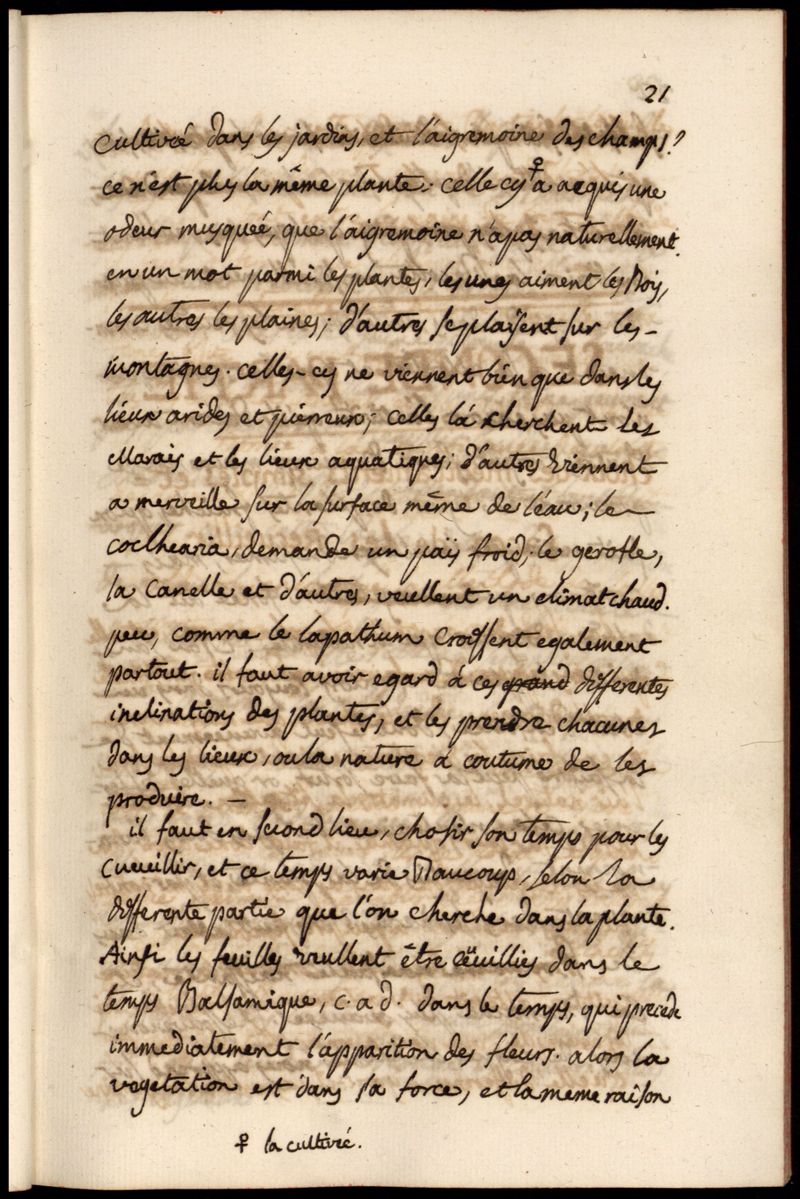 21
cultivée dans les jardins, et l'aigremoine des champs?
ce n'est plus la même plante. celle cy ♀ a acquis une
odeur musquée, que l'aigremoine n'a pas naturellement.
en un mot parmi les plantes, les unes aiment les Bois,
les autres les plaines; d'autres se plaisent sur les
montagnes. celles-cy ne viennent bien que dans les
lieux arides et pierreux; celles là cherchent les
Marais et les lieux aquatiques; d'autres viennent
a merveille sur la surface même de l'eau; le
coclhearia, demande un païs froid; le gerofle,
la Canelle et d'autres, veuellent un climat chaud.
peu, comme le lapathum croissent egalement
partout. il faut avoir egard à ces grand differentes
inclinations des plantes, et les prendre chacunes
dans les lieux, ou la nature à coutume de les
produire. —
il faut en second lieu, chosir son temps pour les
cueuillir, et ce temps varie Baucoup, selon la
differente partie que l'on cherche dans la plante.
Ainsi les feuilles veullent être cëuillies dans le
temps Balsamique, c. a d. dans le temps, qui precede
immediatement l'apparition des fleurs. alors la
vegetation est dans sa force, et la meme raison
♀ la cultivée.